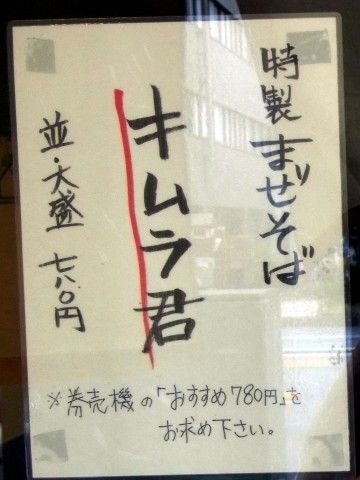 特製まぜそば
キムラ君
並・大盛 七八〇円
※券売機の「おすすめ780円」を
お求め下さい。